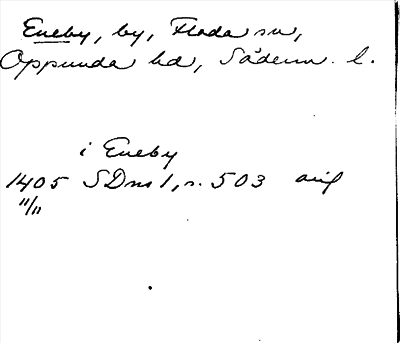 Eneby, by, Floda sn,
Oppunda hd, Söderm. l.
i Eneby
1405 SDns 1, s. 503 orig
11/11